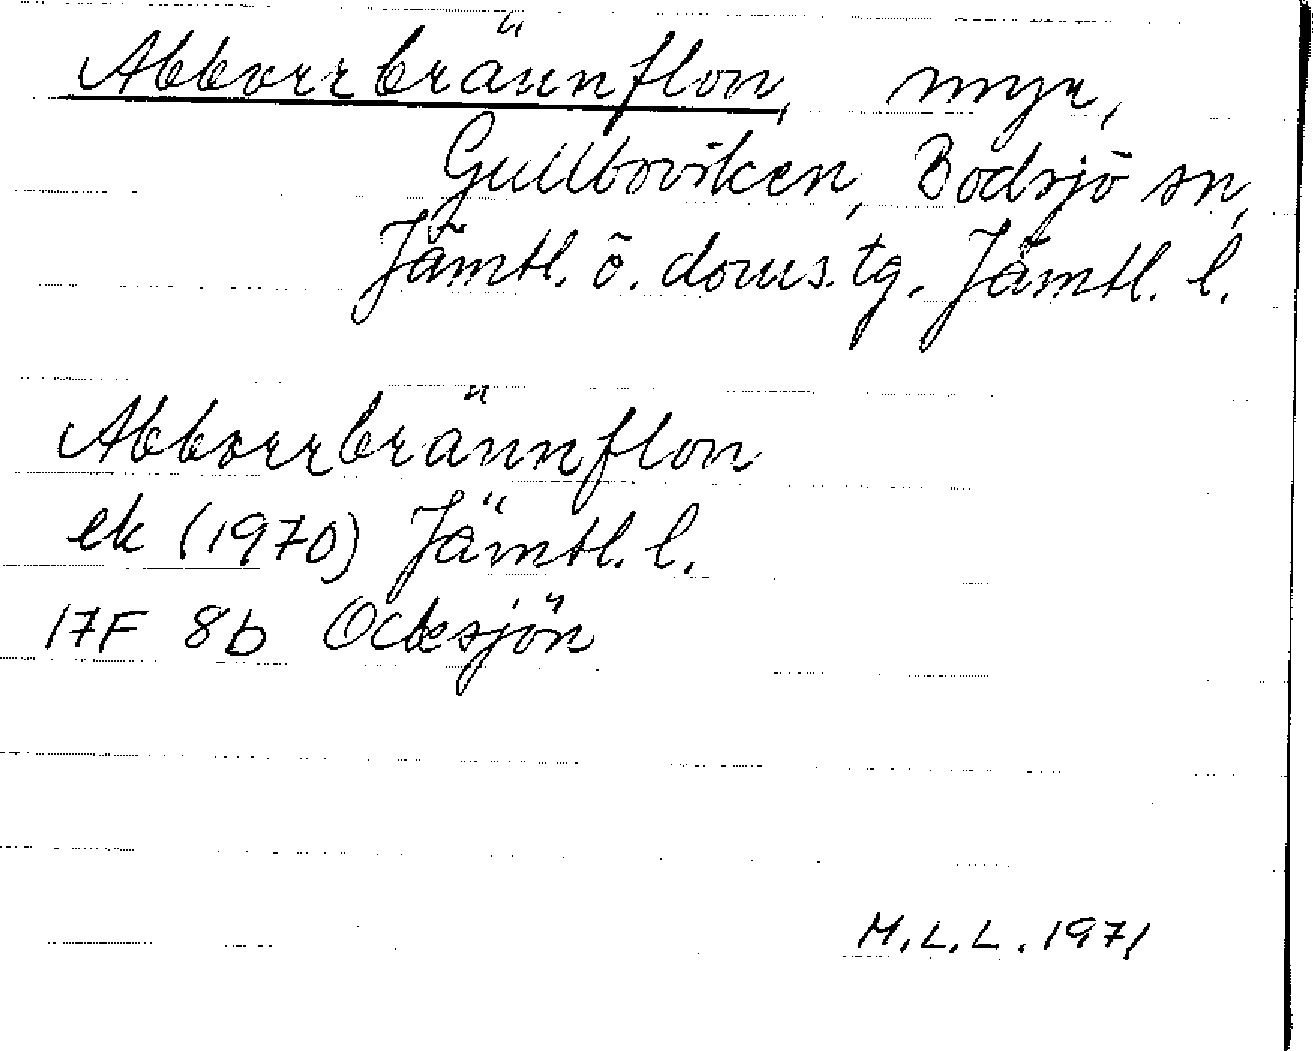 Abborrbrännflon, myr,
Gullboviken, Bodsjö sn,
Jämtl. ö. doms. tg. Jämtl. l.
Abborrbrännflon
ek (1970) Jämtl. l.
17F 8b Ockesjön
M.L.L. 1971